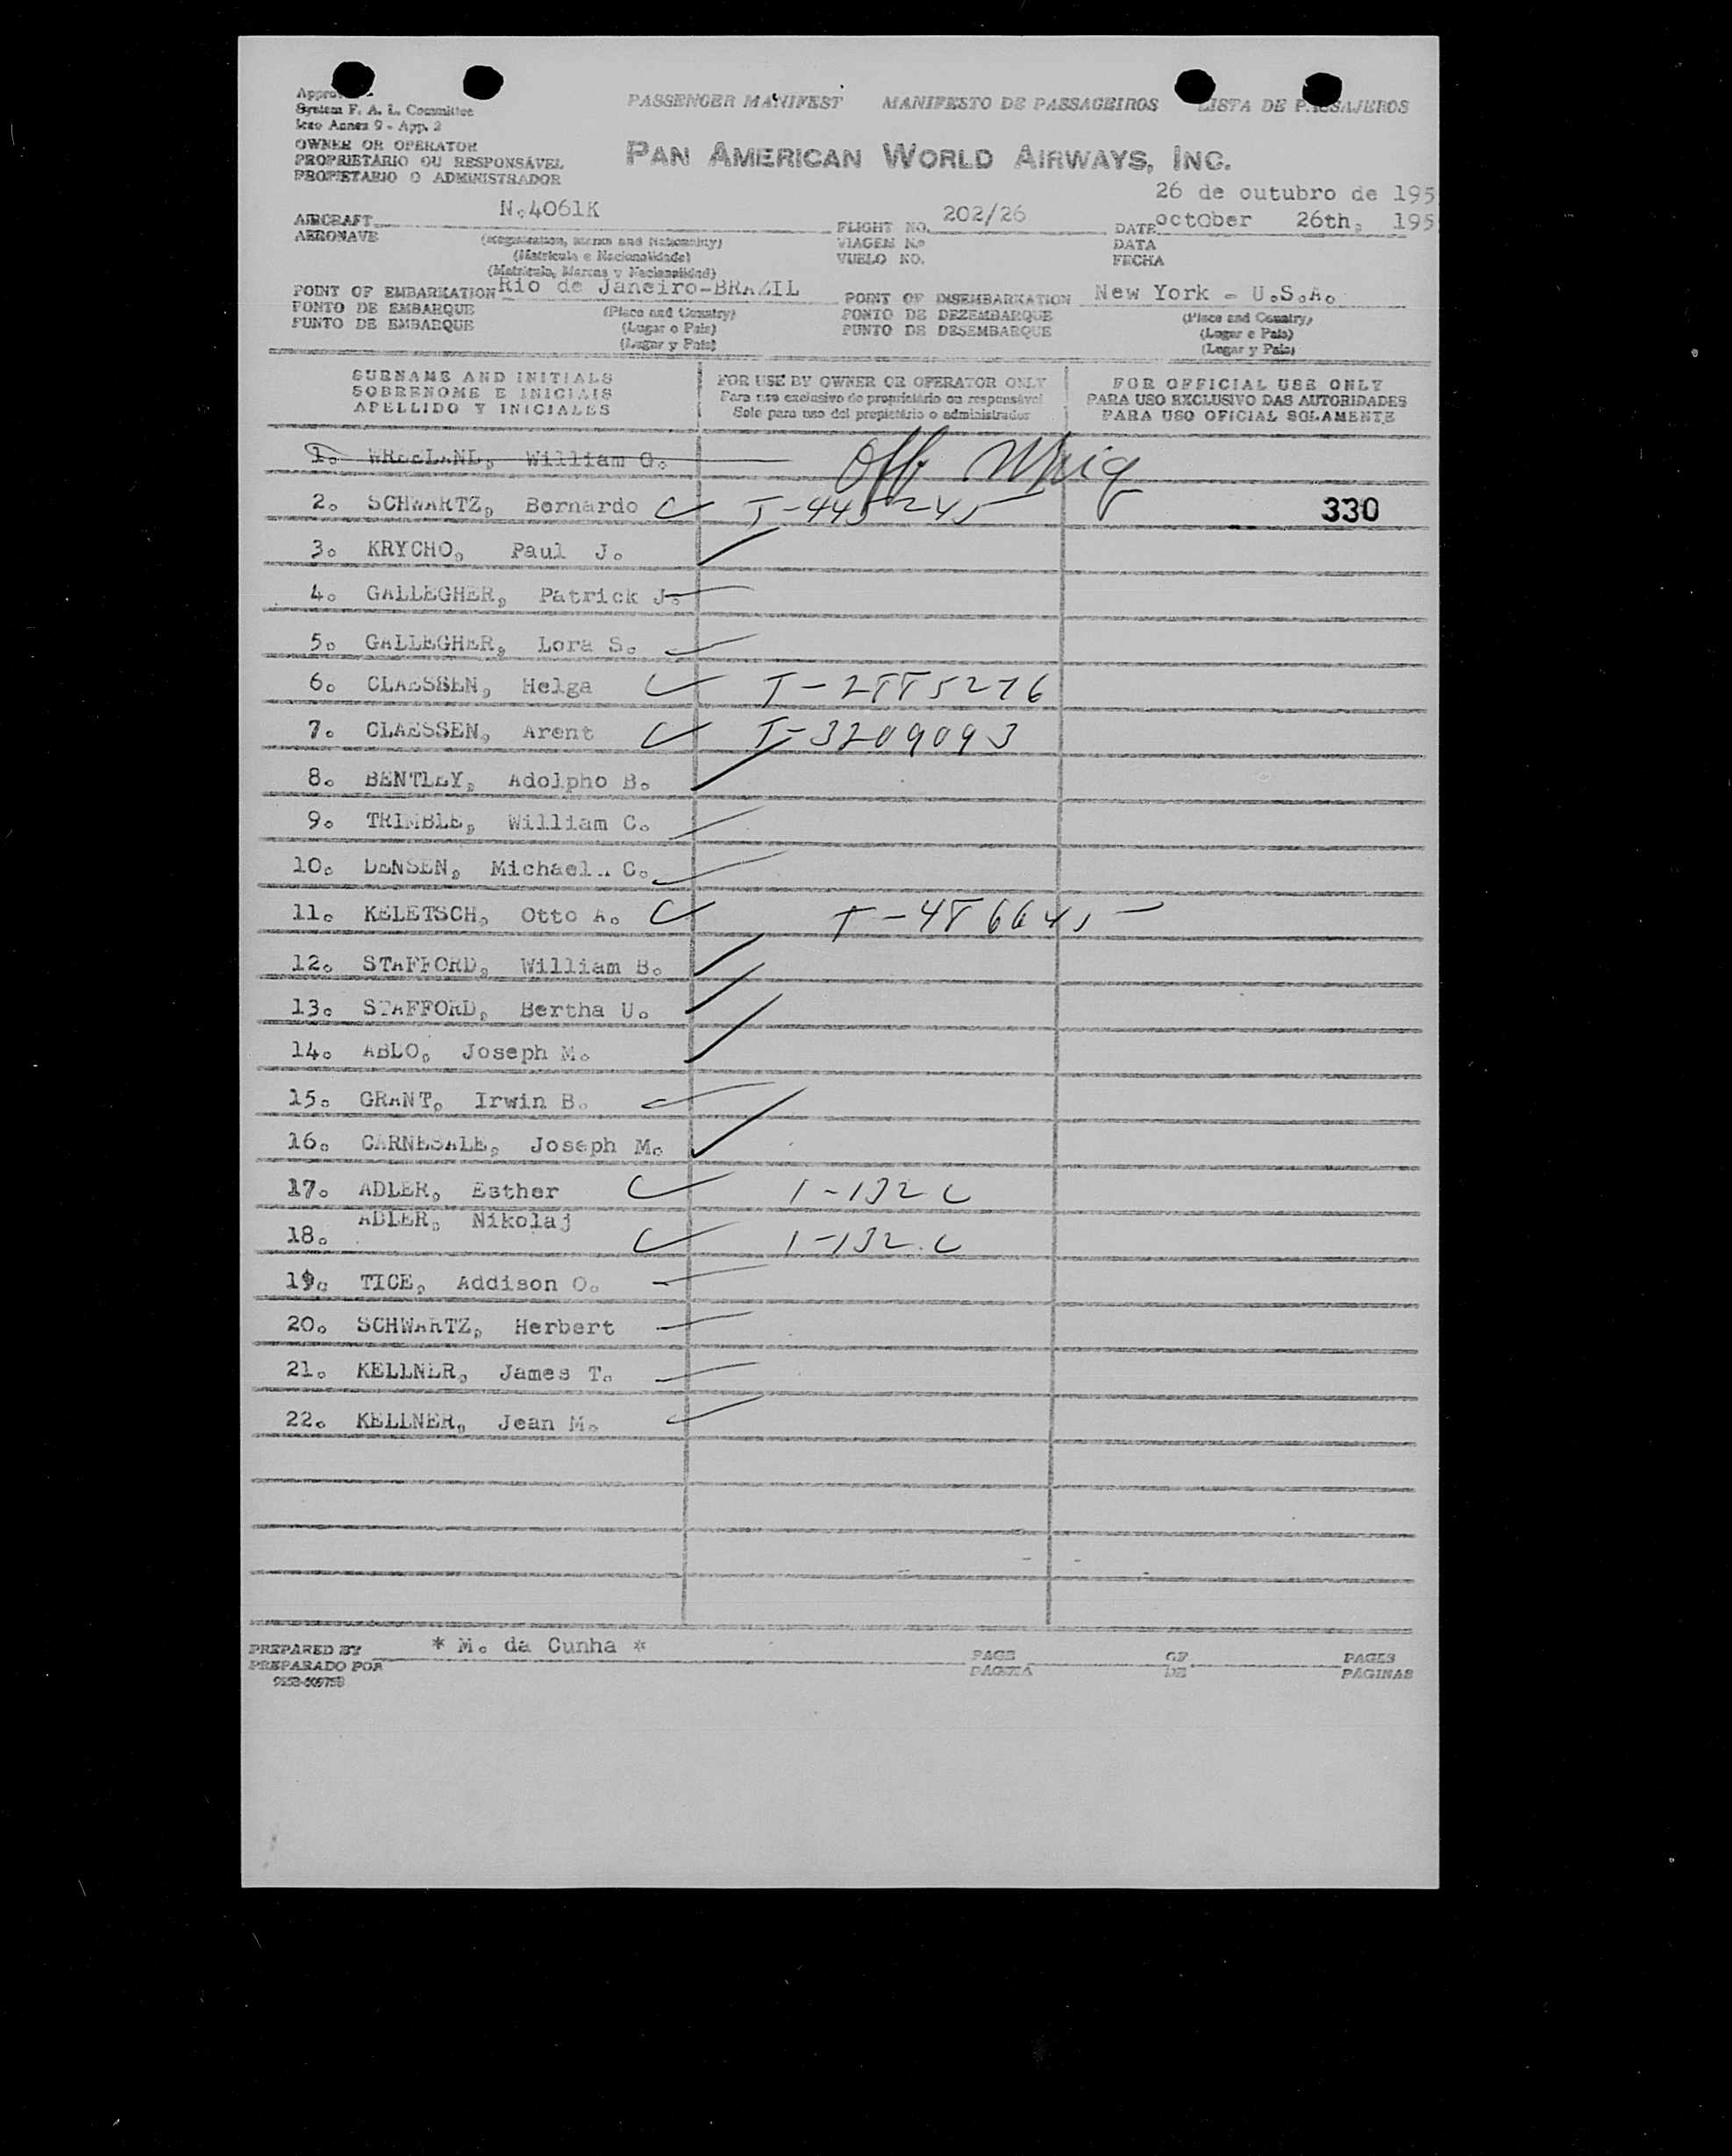 PASSENGER MANIFEST MANIFESTO DE PASSAGEIROS LISTA DE PASAJEROS
System F. A. L. Committee
Icao Annex 9 - App. 2
OWNER OR OPERATOR
PROPRIETÁRIO OU RESPONSÁVEL
PROPIETARIO O ADMINISTRADOR
PAN AMERICAN WORLD AIRWAYS, INC.
26 de outubro de 195
AIRCRAFT N.4061K FLIGHT NO. 202/26 DATE october 26th, 195
AERONAVE (Registration, Marks and Nationality) VIAGEM N.o DATA
(Matrícula e Nacionalidade) VUELO NO. FECHA
(Matrícula, Marcas y Nacionalidad)
POINT OF EMBARKATION Rio de Janeiro-BRAZIL POINT OF DISEMBARKATION New York - U.S.A.
PONTO DE EMBARQUE (Place and Country) PONTO DE DEZEMBARQUE (Place and Country)
PUNTO DE EMBARQUE (Lugar o País) PUNTO DE DESEMBARQUE (Lugar e País)
(Lugar y País) (Lugar y País)
SURNAME AND INITIALS FOR USE BY OWNER OR OPERATOR ONLY FOR OFFICIAL USE ONLY
SOBRENOME E INICIAIS Para uso exclusivo do proprietário ou responsável PARA USO EXCLUSIVO DAS AUTORIDADES
APELLIDO Y INICIALES Solo para uso del propietário o administrador PARA USO OFICIAL SOLAMENTE
1. VREELAND, William O. Off
2. SCHWARTZ, Bernardo T-445245 330
3. KRYCHO, Paul J.
4. GALLEGHER, Patrick J.
5. GALLEGHER, Lora S.
6. CLAESSEN, Helga T-2885276
7. CLAESSEN, Arent T-3209093
8. BENTLEY, Adolpho B.
9. TRIMBLE, William C.
10. DENSEN, Michael. C.
11. KELETSCH, Otto A. T-486645
12. STAFFORD, William B.
13. STAFFORD, Bertha U.
14. ABLO, Joseph M.
15. GRANT, Irwin B.
16. CARNESALE, Joseph M.
17. ADLER, Esther 1-132 C
18. ADLER, Nikolaj 1-132 C
19. TICE, Addison O.
20. SCHWARTZ, Herbert
21. KELLNER, James T.
22. KELLNER, Jean M.
PREPARED BY * M. da Cunha * PAGE OF PAGES
PREPARADO POR PÁGINA DE PÁGINAS